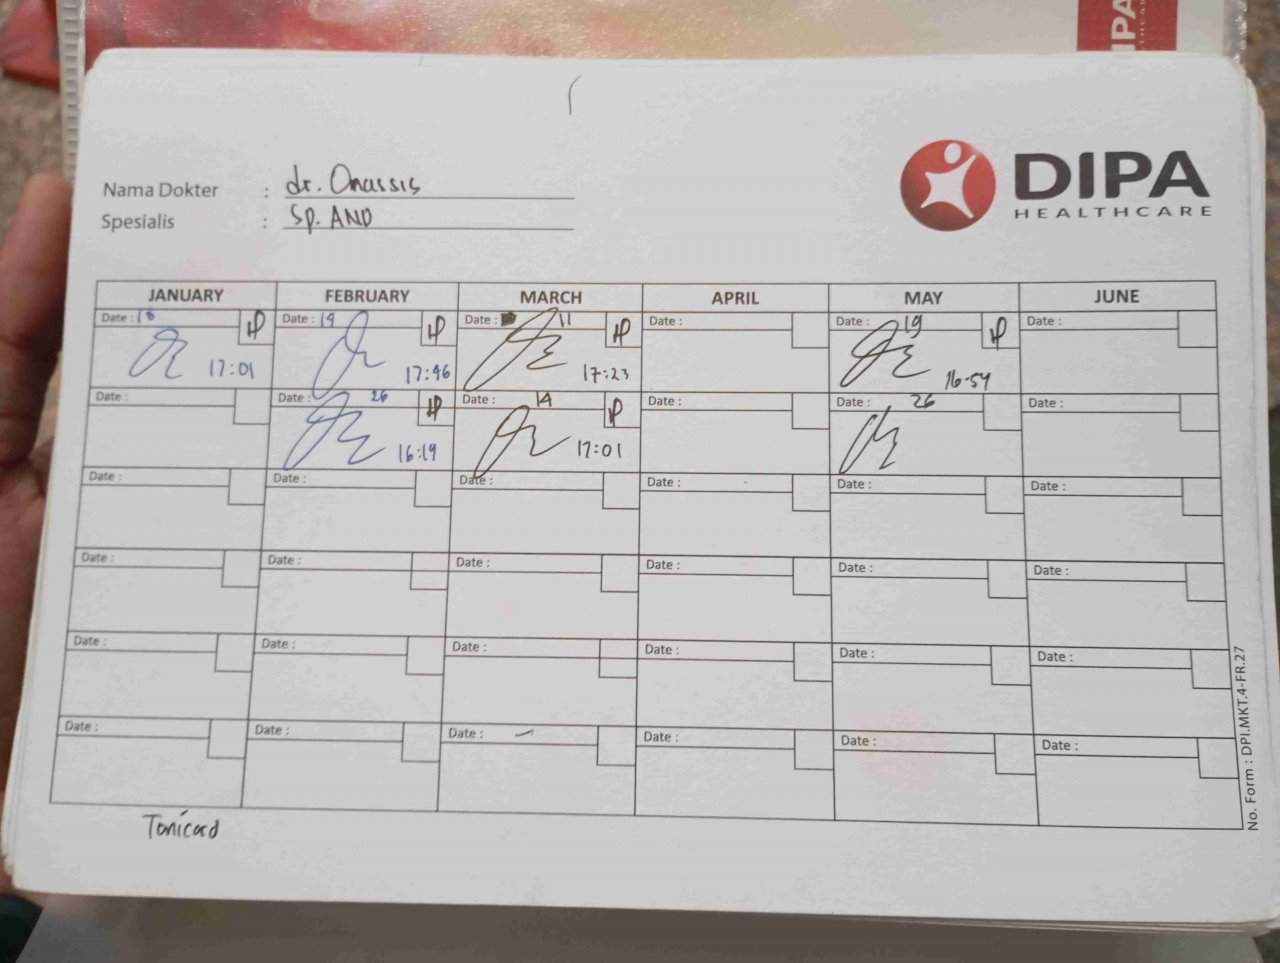 IPA
Nama Dokter : dr. Onassis
Spesialis : Sp. AND
DIPA
HEALTHCARE
JANUARY FEBRUARY MARCH APRIL MAY JUNE
Date : 18 Date : 19 Date : 11 Date : Date : 19 Date :
17:01 17:46 17:23 16-54
Date : Date : 26 Date : 14 Date : Date : 26 Date :
16:19 17:01
Date : Date : Date : Date : Date : Date :
Date : Date : Date : Date : Date : Date :
Date : Date : Date : Date : Date : Date :
Date : Date : Date : Date : Date : Date :
Tonicard
No. Form : DPI.MKT.4-FR.27